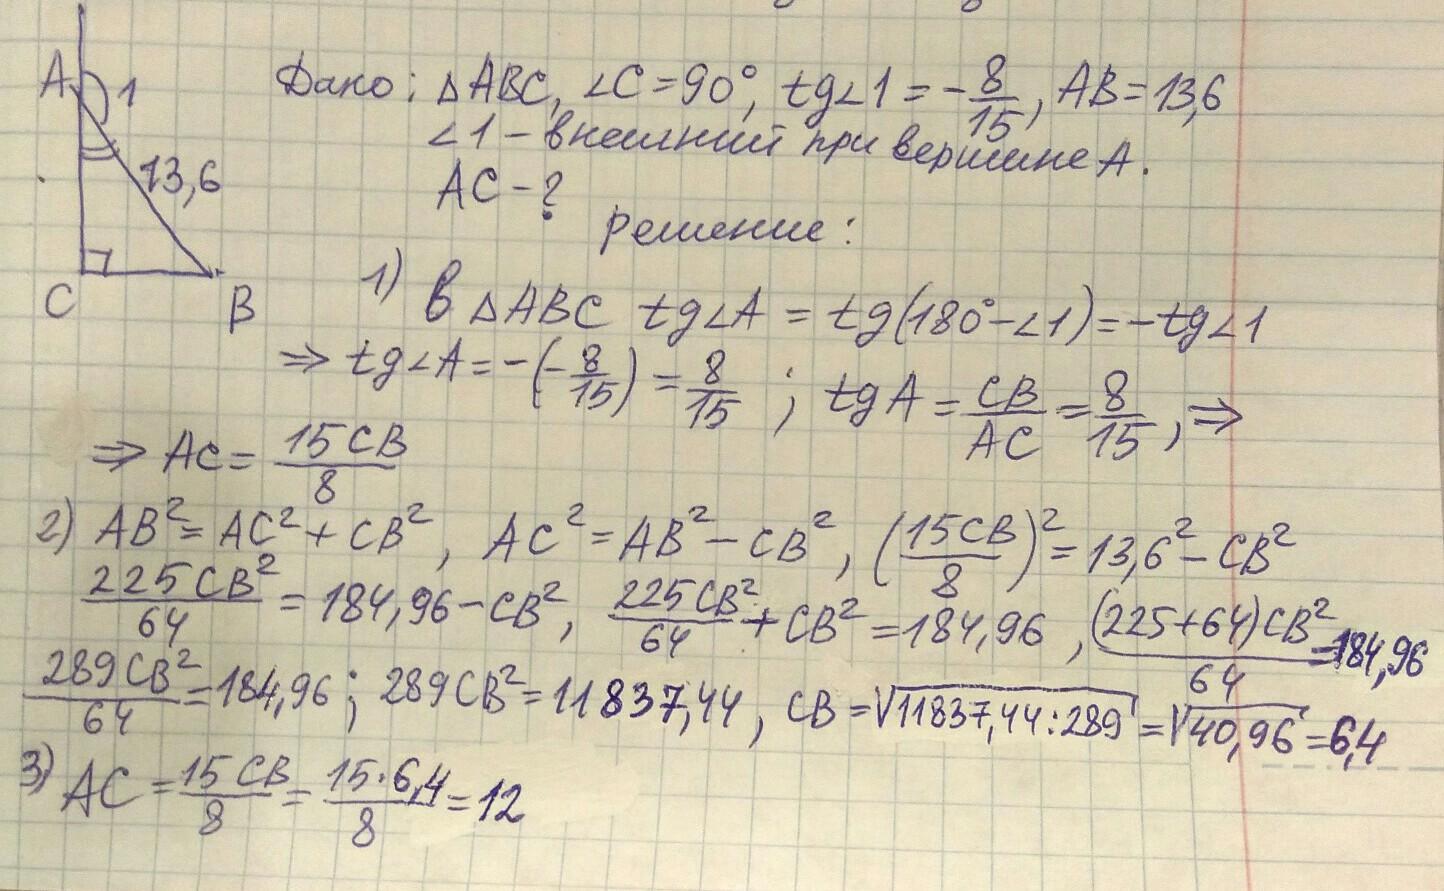 A
1
13,6
C
B
Дано: △ABC, ∠C=90°, tg∠1 = -8/15, AB=13,6
∠1 – внешний при вершине A.
AC - ?
Решение:
1) В △ABC tg∠A = tg(180°-∠1) = -tg∠1
⇒ tg∠A = -(-8/15) = 8/15 ; tgA = CB/AC = 8/15, ⇒
⇒ AC = 15CB/8
2) AB² = AC² + CB², AC² = AB² - CB², (15CB/8)² = 13,6² - CB²
225CB²/64 = 184,96 - CB², 225CB²/64 + CB² = 184,96, (225+64)CB²/64 = 184,96
289CB²/64 = 184,96; 289CB² = 11837,44, CB = √11837,44:289 = √40,96 = 6,4
3) AC = 15CB/8 = 15·6,4/8 = 12